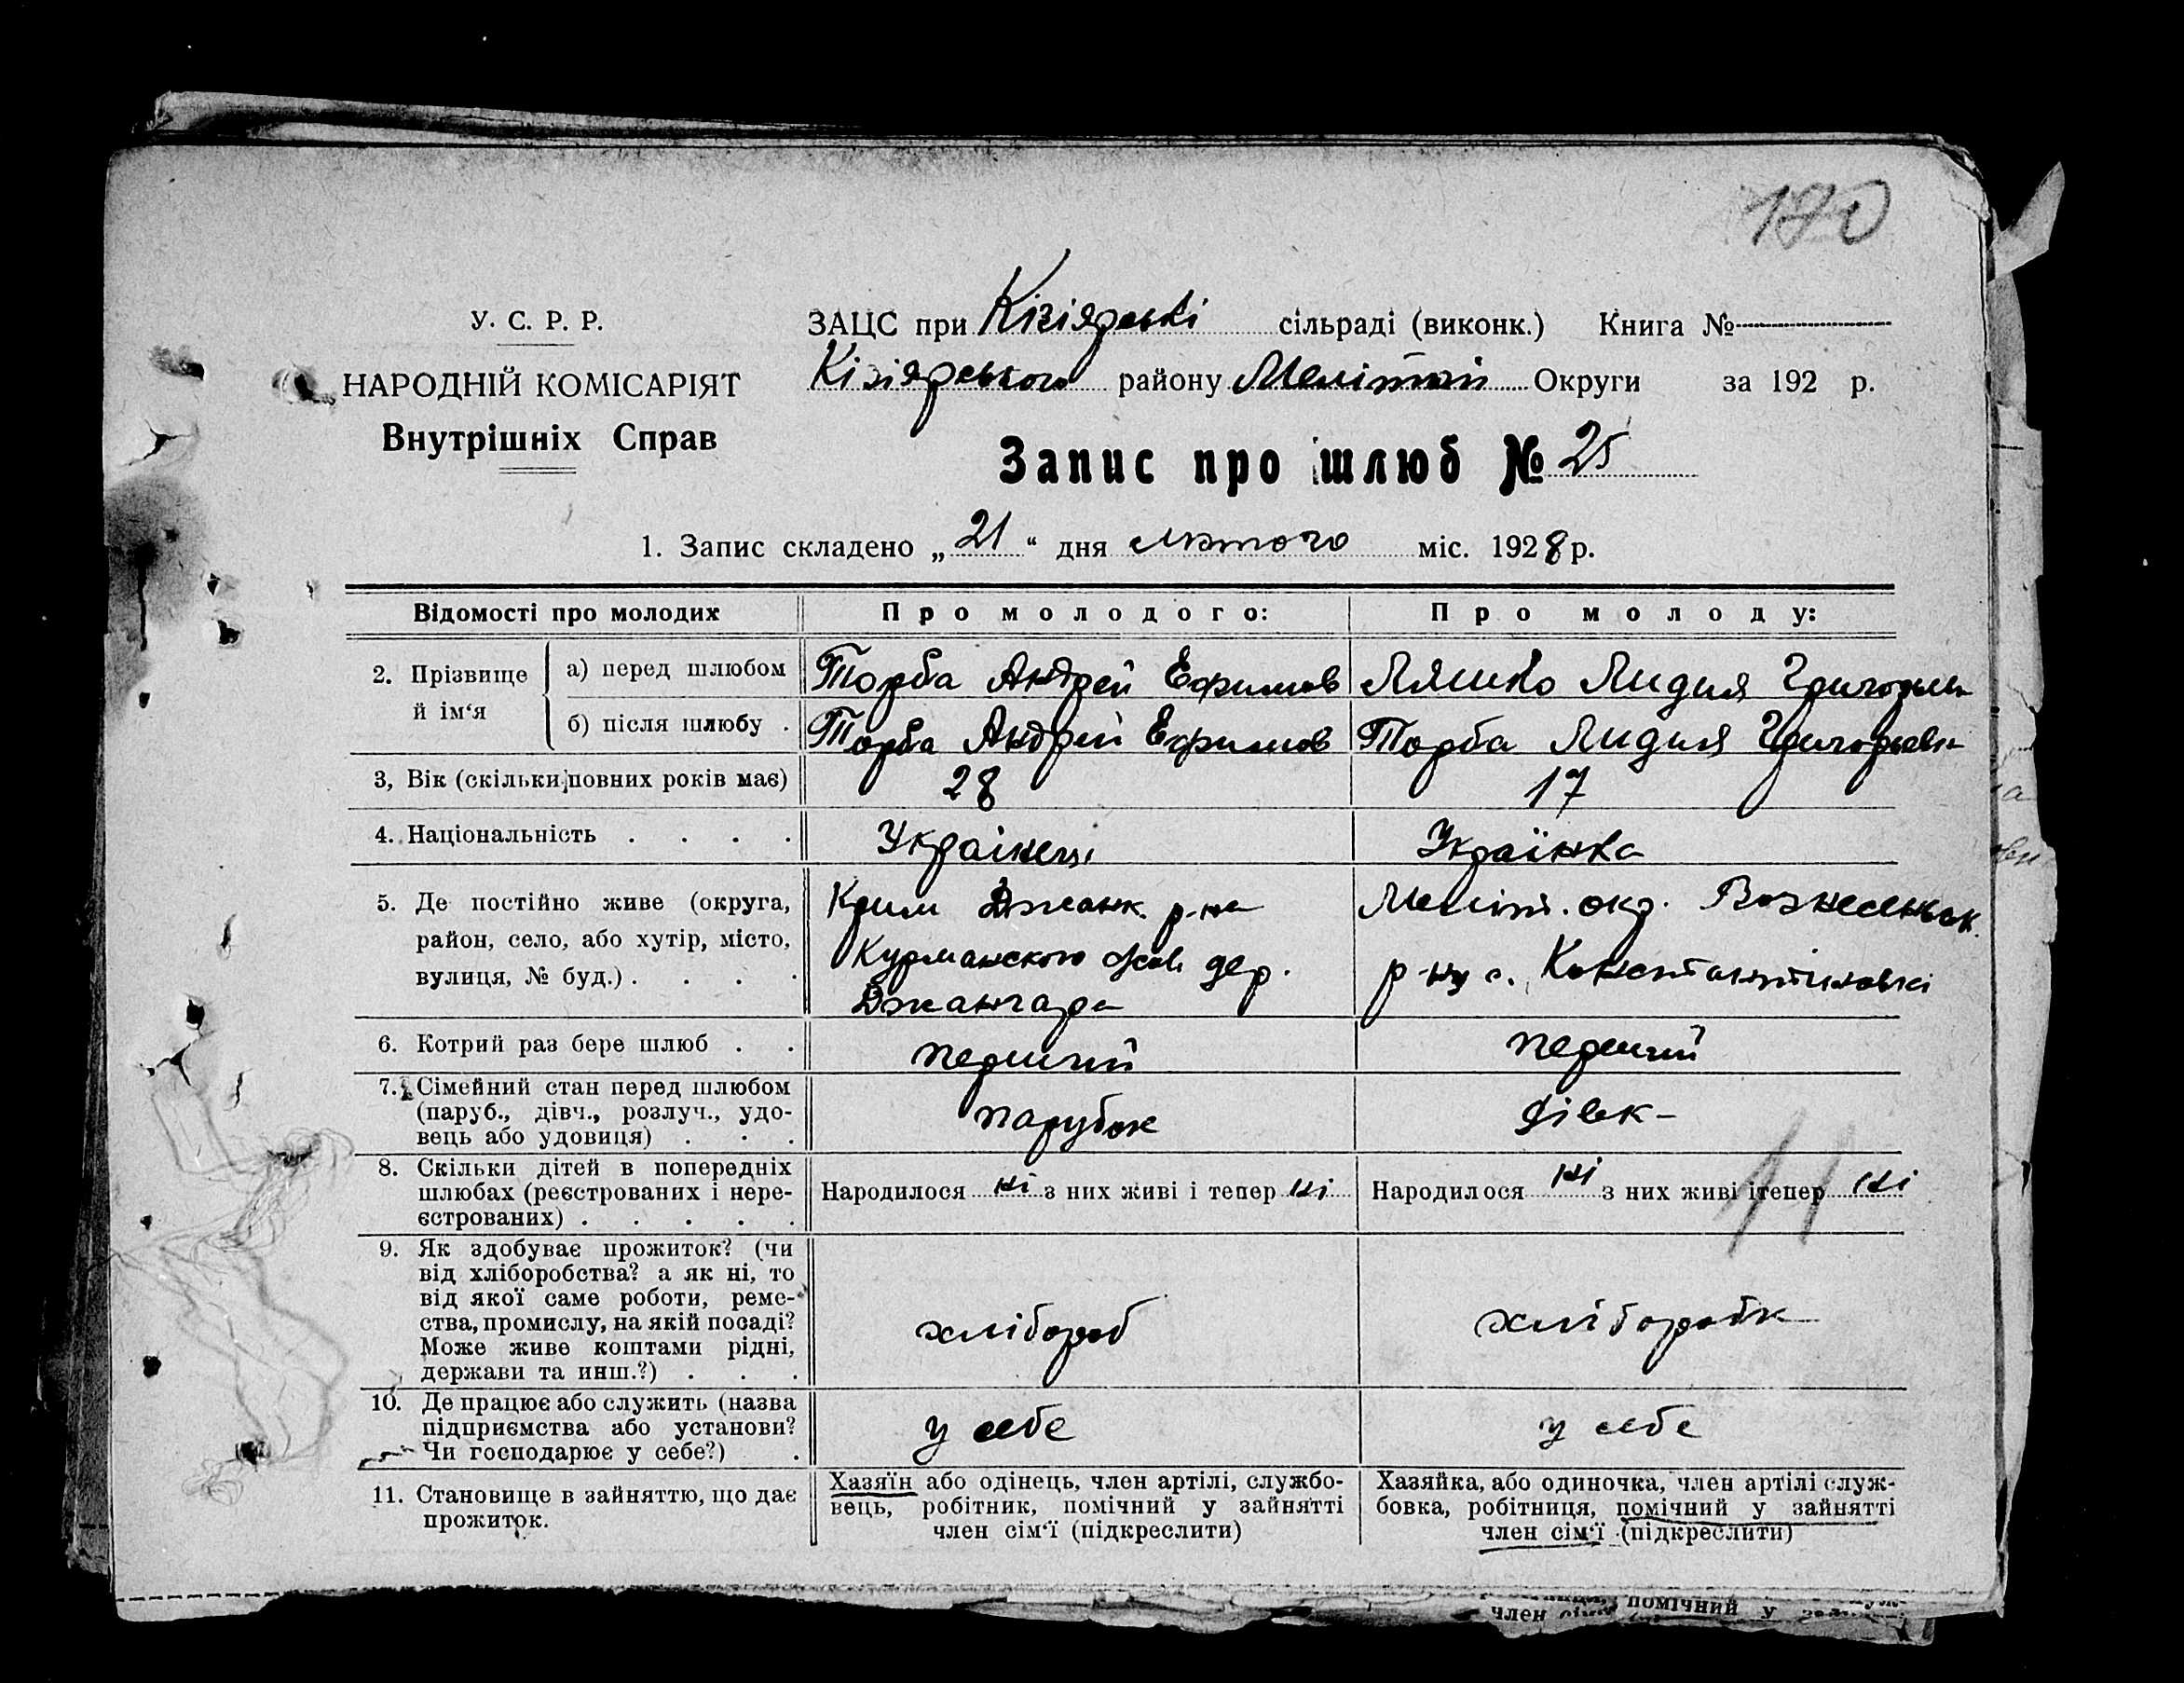 180
У. С. Р. Р.
НАРОДНІЙ КОМІСАРІЯТ
Внутрішніх Справ
ЗАЦС при Кізіярські сільраді (виконк.) Книга №
Кізіярського району Меліто́п Округи за 192 р.
Запис про шлюб № 25
1. Запис складено „ 21 “ дня лютого міс. 1928 р.
Відомості про молодих Про молодого: Про молоду:
2. Прізвище й ім‘я
а) перед шлюбом Торба Андрей Ефимов Ляшко Лидия Григорьев
б) після шлюбу . Торба Андрей Ефимов Торба Лидия Григорьевн
3, Вік (скільки повних років має) 28 17
4. Національність . . . . Украінець Українка
5. Де постійно живе (округа,
район, село, або хутір, місто,
вулиця, № буд.) . . . .
Крим Джанк. р-на
Курманского дер.
Джанчара
Меліт. окр. Вознесенськ.
р-ну с. Константиновкі
6. Котрий раз бере шлюб . . перший перший
7. Сімейний стан перед шлюбом
(паруб., дівч., розлуч., удо-
вець або удовиця) . . .
парубок дівк-
8. Скільки дітей в попередніх
шлюбах (реєстрованих і нере-
єстрованих) . . . . .
Народилося ні з них живі і тепер ні
Народилося ні з них живі ітепер ні
11
9. Як здобуває прожиток? (чи
від хліборобства? а як ні, то
від якої саме роботи, реме-
ства, промислу, на якій посаді?
Може живе коштами рідні,
держави та инш.?) . . .
хлібороб хліборобк
10. Де працює або служить (назва
підприємства або установи?
Чи господарює у себе?) .
у себе у себе
11. Становище в зайняттю, що дає
прожиток.
Хазяїн або одінець, член артілі, службо-
вець, робітник, помічний у зайнятті
член сім‘ї (підкреслити)
Хазяйка, або одиночка, член артілі служ-
бовка, робітниця, помічний у зайнятті
член сім‘ї (підкреслити)
член помічний у